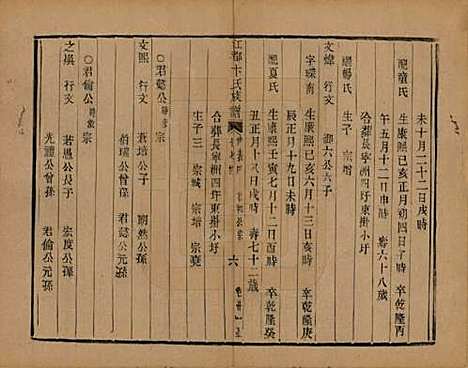 未十月二十二日戌時
配薛氏
生康熙己亥正月初四日子時 卒乾隆丙
午五月十二日午時 壽六十八歲
合葬長寧洲四圩東掛小圩
文煒 行文 鄰六公子
配楊氏
生子 宗
字曙南
生康熙己亥六月十三日亥時 卒乾隆庚
辰正月十九日未時
配夏氏
生康熙壬寅七月十二日酉時 卒乾隆癸
丑正月十八日戌時 壽七十二歲
合葬長寧洲四年東掛小圩
生子三 宗城 宗增 宗堯
江都卞氏族譜
六
文熙 行文 蒼培公子 朗然公孫
伯瑞公曾孫 君懿公元孫
○君懿公 宗
○君倫公 宗
之湛 行文 若愚公長子 宏度公孫
光麗公曾孫 君倫公元孫